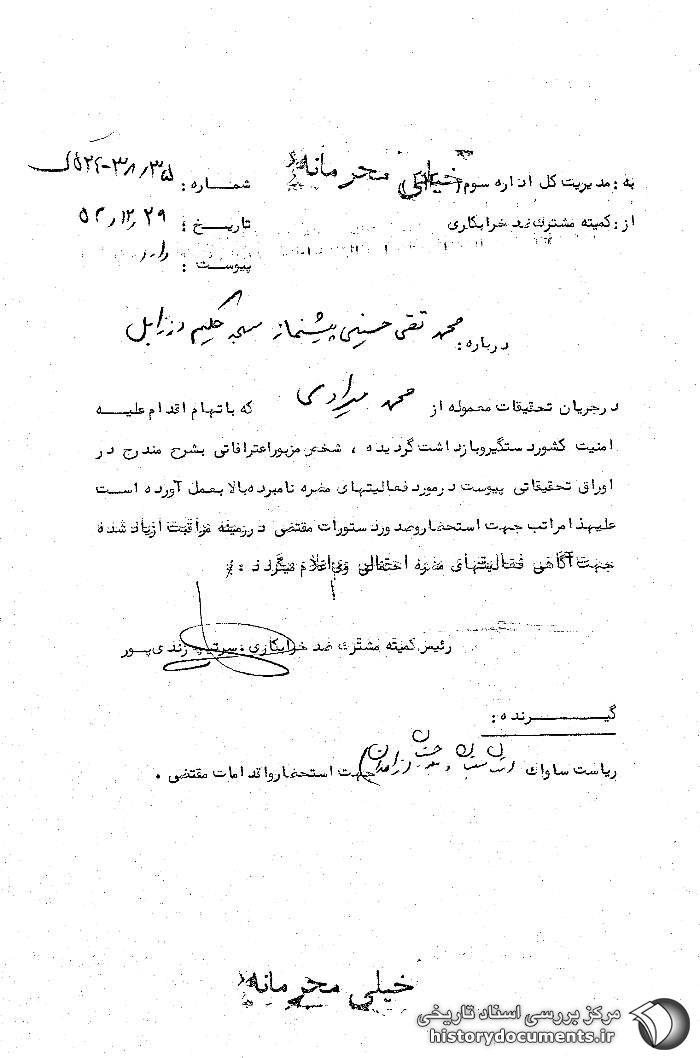 خیلی محرمانه
به : مدیریت کل اداره سوم (۳۱۲) شماره :
از : کمیته مشترک ضد خرابکاری تاریخ : ۵۳٫۱۲٫۲۹
پیوست : دارد
درباره : محمد تقی حسینی پیشنماز مسجد حکیم در زابل
درجریان تحقیقات معموله از محمد مرادی که باتهام اقدام علیه
امنیت کشوردستگیروبازداشت گردیده ، شخص مزبوراعترافاتی بشرح مندرج در
اوراق تحقیقاتی پیوست درمورد فعالیتهای مضره نامبرده بالا بعمل آورده است
علیهذا مراتب جهت استحضاروصدوردستورات مقتضی درزمینه مراقبت ازیاد شده
جهت آگاهی فعالیتهای مضره احتمالی وی اعلام میگردد ./
رئیس کمیته مشترک ضد خرابکاری ، سرتیپ زندی پور
گیرنده :
ریاست ساواک استان سیستان و بلوچستان زاهدان جهت استحضارواقدامات مقتضی .
خیلی محرمانه
مرکز بررسی اسناد تاریخی
historydocuments.ir